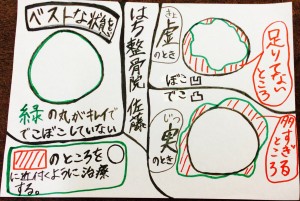 ベストな状態
緑の丸がキレイで
でこぼこしていない
のところを
に近付くように治療
する。
はち整骨院 佐藤
きょ
虚
のとき
足りない
ところ
ぼこ凹
でこ凸
じつ
実
のとき
多すぎる
ところ